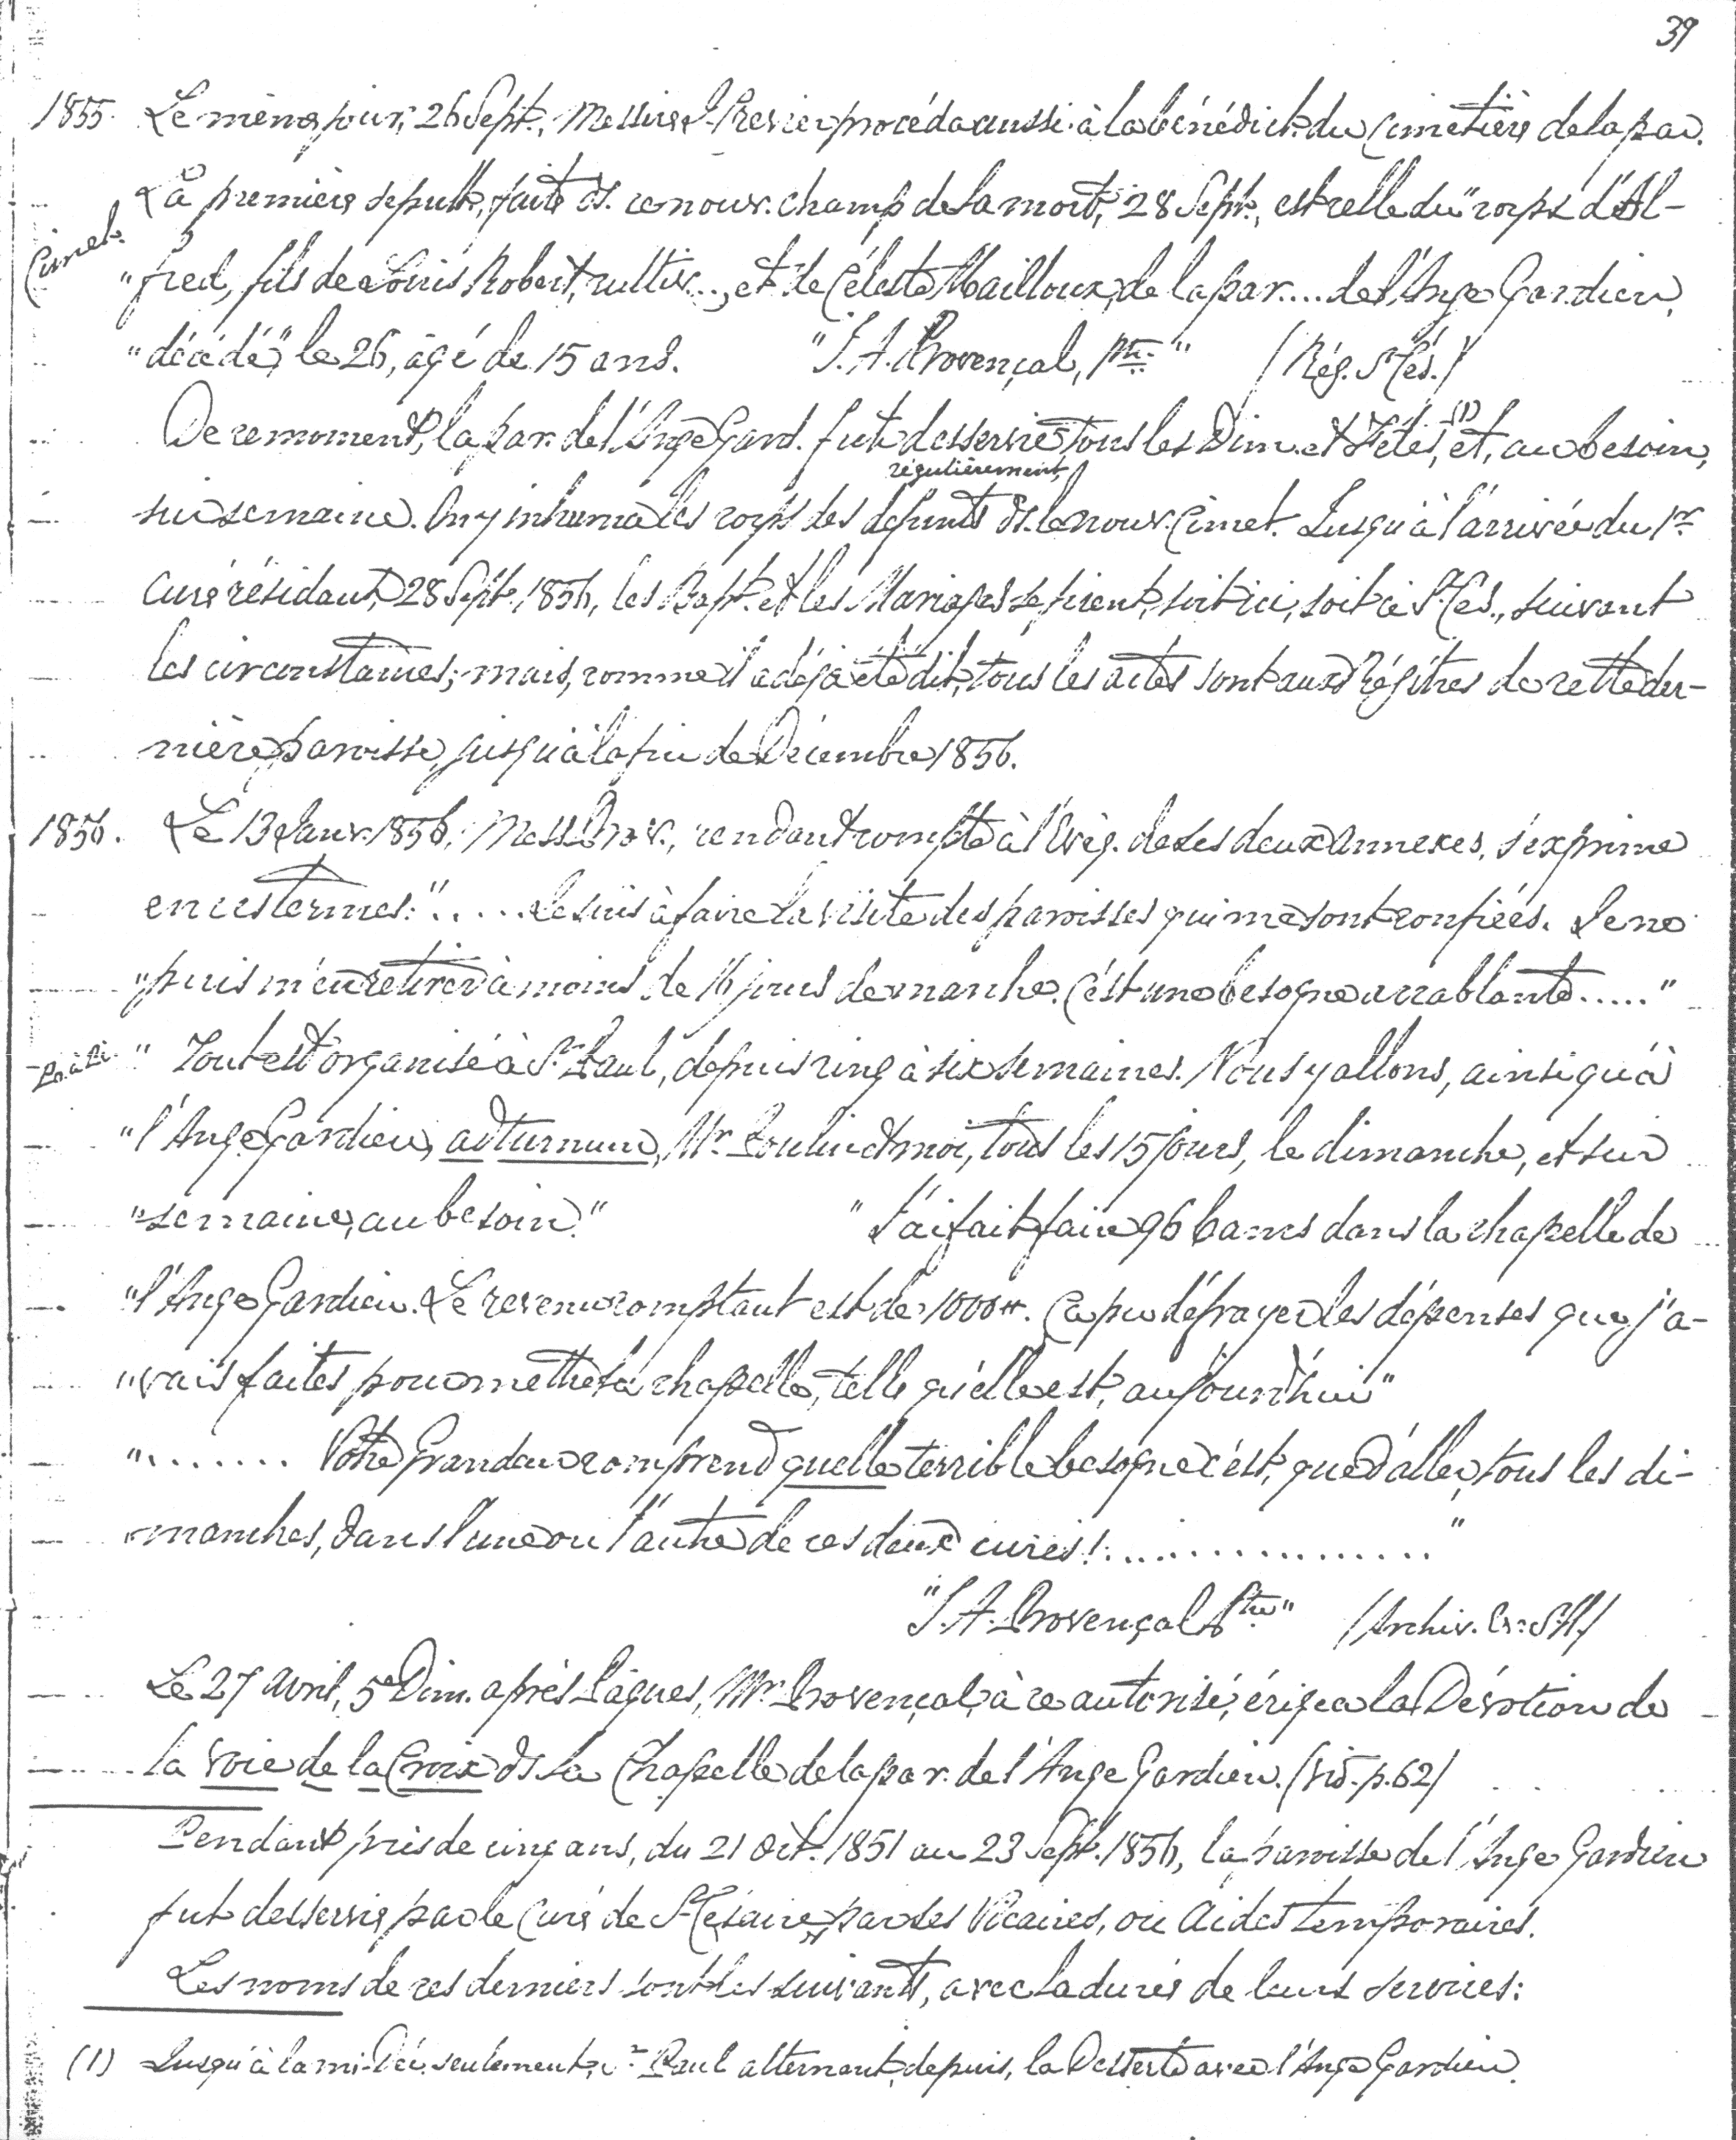 39
1855. Le même jour, 26 Sept., Messire Crevier procéda aussi à la bénédict. du Cimetière de la par.
Cimet.
La première sépult., faite ds. ce nouv. champ de la mort, 28 Sept., est celle du "corps d'Al-
"fred, fils de Louis Robert, cultiv..., et de Céleste Mailloux, de la par.... de l'Ange Gardien,
"décédé," le 26, âgé de 15 ans. "J. A. Provençal, Ptre." (Rég. St Cés.)
De ce moment, la par. de l'Ange Gard. fut desservie, tous les Dim. et Fêtes, (1) et, au besoin,
régulièrement,
sur semaine. On y inhuma les corps des défunts ds. le nouv. Cimet. Jusqu'à l'arrivée du 1er
Curé résidant, 28 Sept. 1856, les Bapt. et les Mariages se firent, soit ici, soit à St Cés., suivant
les circonstances; mais, comme il a déjà été dit, tous les actes sont aux Régîtres de cette der-
nière paroisse, jusqu'à la fin de Décembre 1856.
1856. Le 13 Janv. 1856, Mess. Prov., rendant compte à l'Evêq. de ses deux annexes, s'exprime
en ces termes: "..... Je suis à faire la visite des paroisses qui me sont confiées. Je ne
"puis m'en retirer à moins de 16 jours de marche. C'est une besogne accablante....."
" Tout est organisé à St Paul, depuis cinq à six semaines. Nous y allons, ainsi qu'à
"l'Ange Gardien, ad turnum, Mr. Poulin et moi, tous les 15 jours, le dimanche, et sur
"semaine, au besoin." "J'ai fait faire 96 bancs dans la chapelle de
"l'Ange Gardien. Le revenu comptant est de 1000#. Ça pu défrayer les dépenses que j'a-
"vais faites pour mettre la chapelle, telle qu'elle est, aujourd'hui"
"....... Votre Grandeur comprend quelle terrible besogne c'est, que d'aller, tous les di-
manches, dans l'une ou l'autre de ces deux cures!.................."
"J. A. Provençal Ptre" (Archiv. Ev. St H.)
Le 27 Avril, 5e Dim. après Pâques, Mr. Provençal, à ce autorisé, érigea la Dévotion de
la Voie de la Croix ds la Chapelle de la par. de l'Ange Gardien. (Vid. p. 62)
Pendant près de cinq ans, du 21 Oct. 1851 au 23 Sept. 1856, la paroisse de l'Ange Gardien
fut desservie par le Curé de St Césaire, par ses Vicaires, ou Aides temporaires.
Les noms de ces derniers sont les suivants, avec la durée de leurs services:
(1) Jusqu'à la mi-Déc. seulement, St Paul alternant, depuis, la Desserte avec l'Ange Gardien.